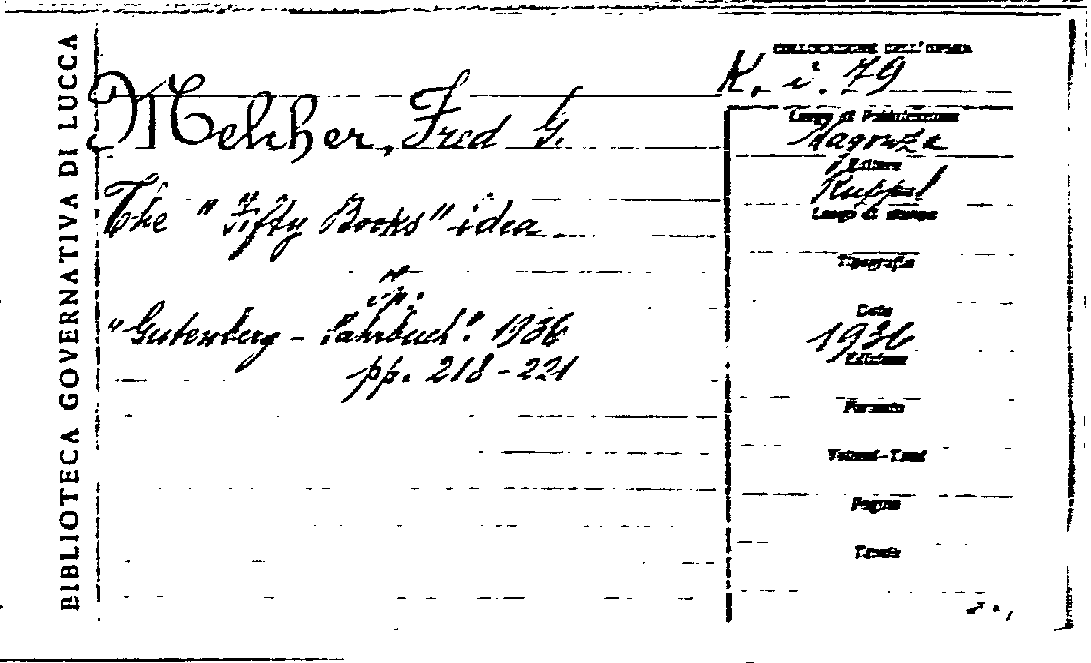 BIBLIOTECA GOVERNATIVA DI LUCCA
COLLOCAZIONE DELL'OPERA
K. i. 79
Melcher, Fred G.
The "Fifty Books" idea
in:
"Gutenberg - Jahrbuch". 1936
pp. 218-221
Luogo di Pubblicazione
Magonza
Editore
Ruppel
Luogo di stampa
Tipografia
Data
1936
Edizione
Formato
Volumi-Tomi
Pagine
Tavole